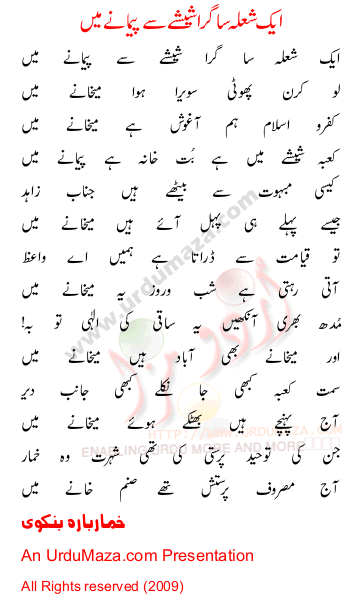 ایک شعلہ سا گرا شیشے سے پیمانے میں
ایک شعلہ سا گرا شیشے سے پیمانے میں
لو کرن پھوٹی سویرا ہوا میخانے میں
کفرو اسلام ہم آغوش ہے میخانے میں
کعبہ شیشے میں ہے بُت خانہ ہے پیمانے میں
کیسی مبہوت سے بیٹھے ہیں جناب زاہد
جیسے پہلے ہی پہل آئے ہیں میخانے میں
تو قیامت سے ڈراتا ہے ہمیں اے واعظ
آتی رہتی ہے شب وروز یہ میخانے میں
مُدھ بھری آنکھیں یہ ساقی کی الٰہی تو بہ!
اور میخانے بھی آباد ہیں میخانے میں
سمت کعبہ کبھی جا نکلے کبھی جانب دیر
آج پہنچے ہیں بھٹکے ہوئے میخانے میں
جن کی توحید پرستی کی تھی شہرت وہ خمار
آج مصروف پرستش تھے صنم خانے میں
خمار بارہ بنکوی
An UrduMaza.com Presentation
All Rights reserved (2009)
www.urdumaza.com
HTTP://WWW.URDUMAZA.COM
ENABLING URDU MORE AND MORE